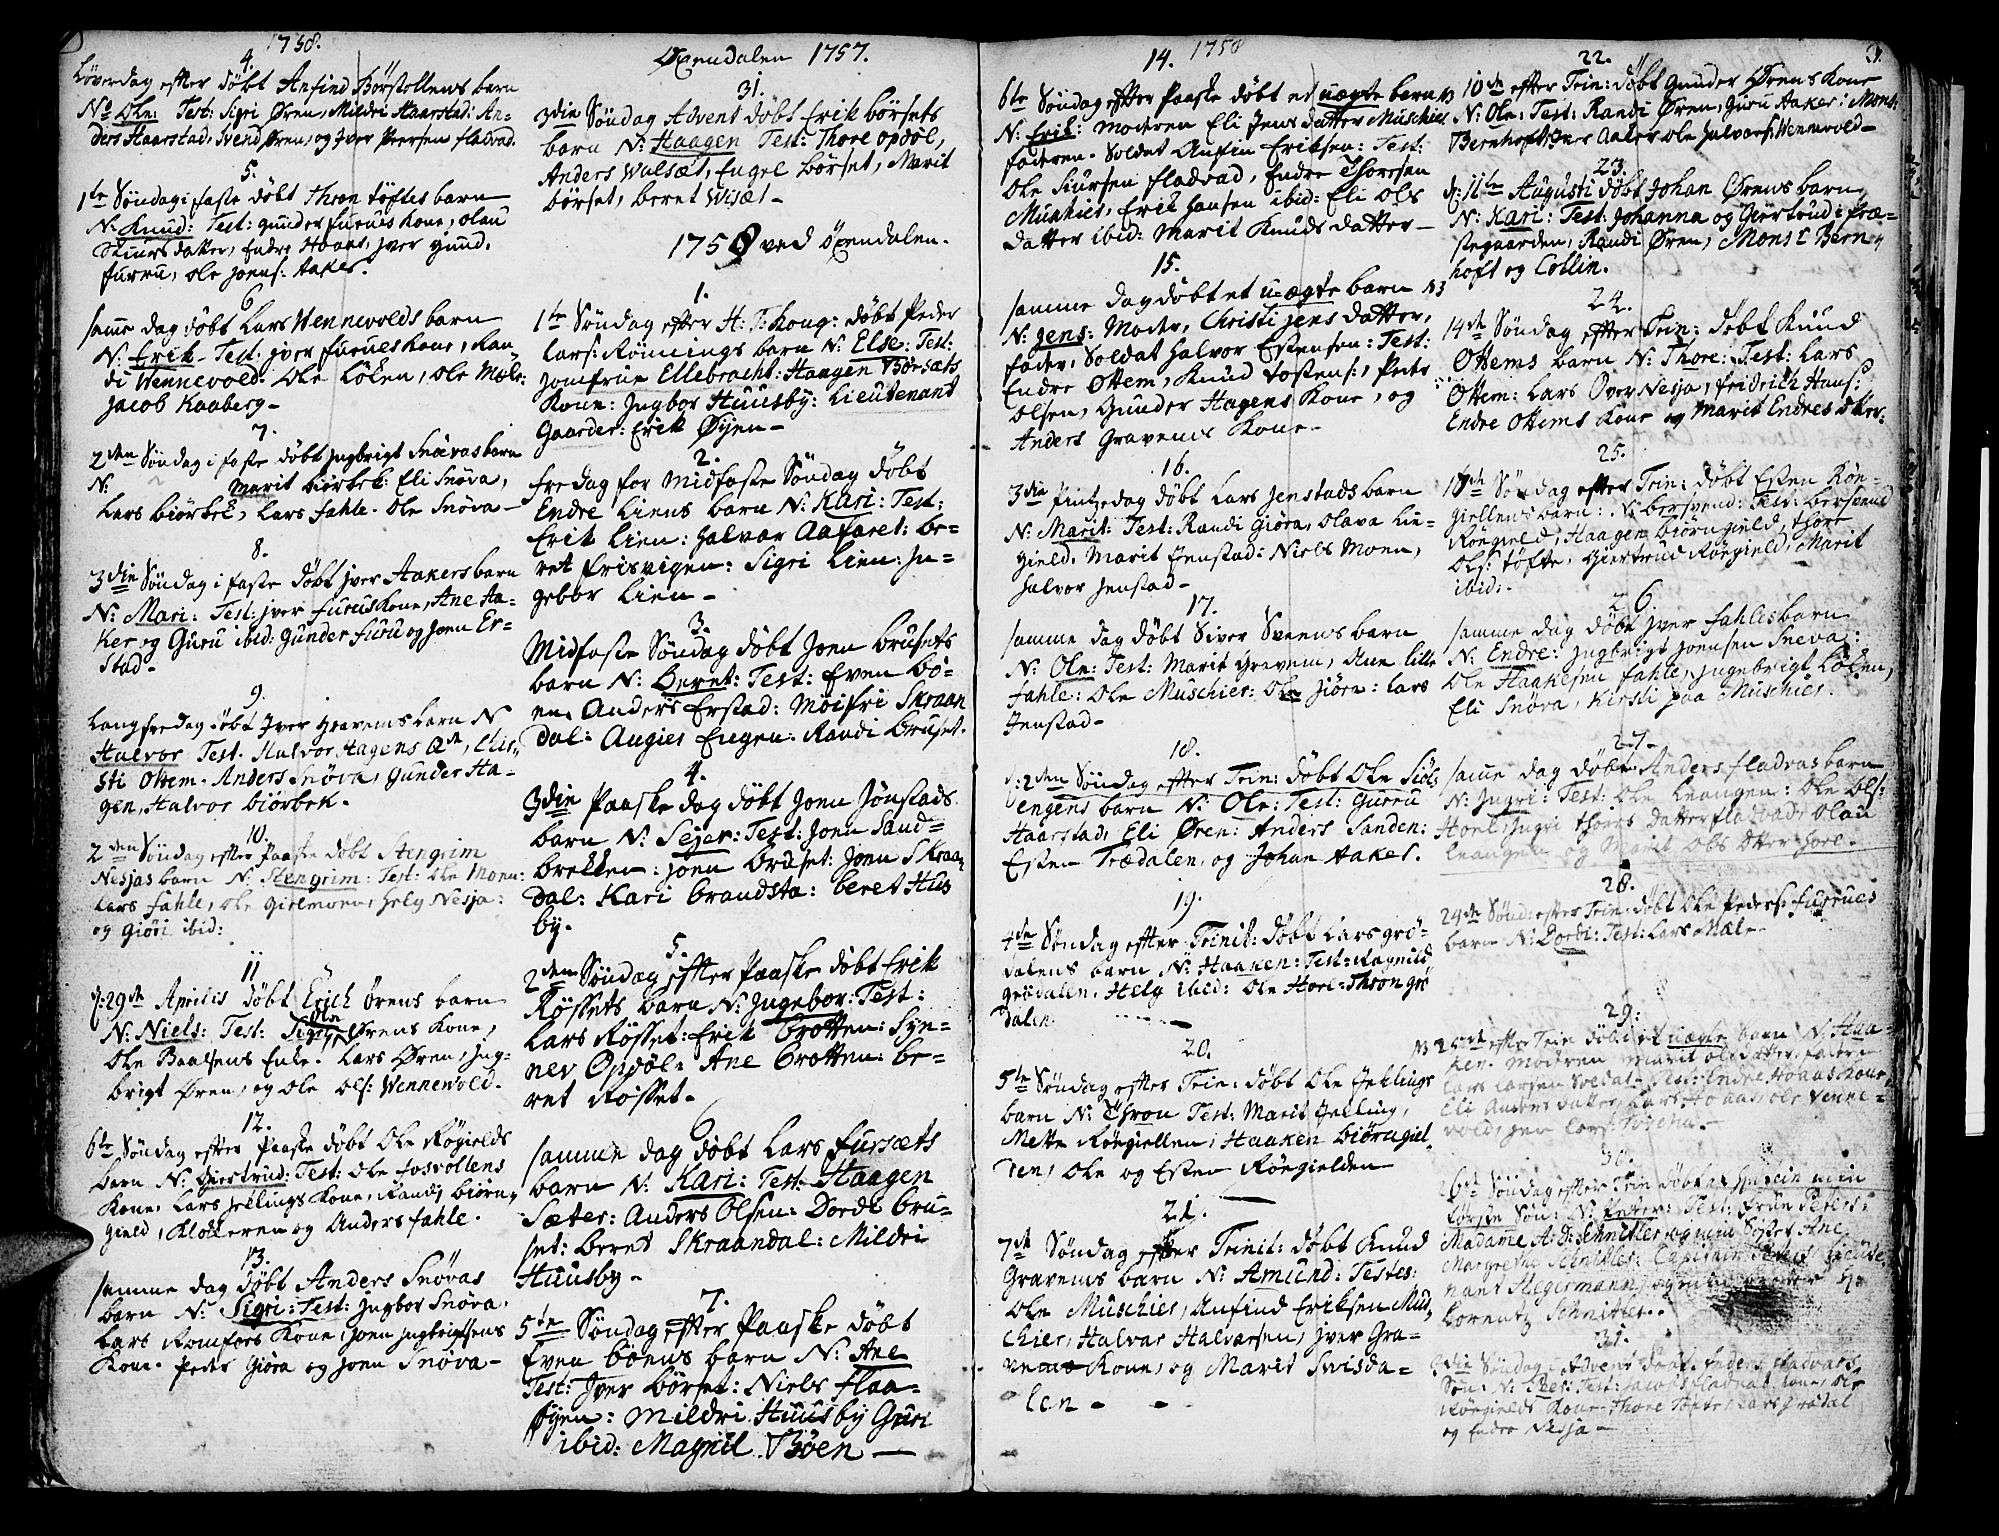 1758.
4.
Löverdag efter döbt Anfind Börstollens barn
No Ole: Test: Sigri Ören, Mildri Haarstad: An-
ders Haarstad, Svend Ören, og Jver Peersen fladvad.
5.
1te Söndag i faste döbt Thron töftes barn
N: Knud: Test: gunder furues Kone, olau
Siurs datter, Endre Hoaas, jver gund.
furru, ole joens: Aakes.
6
samme dag döbt Lars Wennevolds barn
N: Erik - Test: jver furues Kone, Ran
di Wennevold: Ole Löken, Ole Mæle:
Jacob Kaaberg -
7.
2den Söndag i faste döbt Jngbrigt Snövas barn
N: Marit biörbek: Eli Snöva,
Lars biörbek, Lars fahle. Ole Snöva -
8.
3die Söndag i faste döbt jver Aakers barn
N: Mari: Test: jver furus Kone, Ane Aa-
Ker og Guru ibid: gunder furu og joen Er-
stad -
9.
Langfredag döbt Jver gravems barn N
Halvor Test. Halvor Hagens
sti Ottem. Anders Snöva, gunder Ha-
gen, Halvor biörbek.
10.
2den Söndag efter Paaske döbt Stengrim
Nesjas barn N. Stengrim: Test: Ole Moen:
Lars fahle, Ole gielmoen, helg Nesja:
og giöri ibid:
11
d: 29de Aprilis döbt Erich örens barn
N: Niels: Test: Sigri Ole Örens Kone,
Ole Baalsens Enke: Lars Ören, Jng-
brigt Ören, og Ole Ols: Wennevold.
12.
6te Söndag efter Paaske döbt Ole Rögields
barn N: giertrud: Test: Ole fosvollens
Kone, Lars jellings Kone, Randi biörn-
gield, Klokeren og Anders fahle.
13.
samme dag döbt Anders Snövas
barn N: Sigri: Test: Jngbor Snöva,
Lars Romfors Kone, Joen Jngbrigtsens
Kone. Peder Giöra og joen Snöva -
Öxendalen 1757.
31.
3die Söndag Advent döbt Erik börsets
barn N: Haagen Test: Thore opdöl,
Anders Walsæt, Engel börset, Marit
börset, beret Wisæt -
1758 ved öxendalen.
1.
1te Söndag efter H: T: Kong: döbt Peder
Lars: Römings barn N: Else: Test:
Jomfrue Ellebracht: Haagen Börsæts
Kone: Jngbor Huusby: Lieutenant
Gaarder: Erik Öyen -
2.
fredag for Midfaste Söndag döbt
Endre Liens barn N: Kari: Test:
Erik Lien: halvor Aafaret: be-
ret frisvigen: Sigri Lien: Jn-
gebor Lien -
3.
Midfaste Söndag döbt Joen brusets
barn N: Beret: Test: Even bö-
en. Anders Erstad: Möifri Skraan
dal: Augier Engen: Randi bruset.
4.
3die Paaske dag döbt Joen Jönstads
barn N: Sejer: Test: Joen Sand=
brekken: joen bruset: Joen Skraan
dal: Kari brandsta: beret Hus
by.
5.
2den Söndag efter Paaske döbt Erik
Rössets barn N: Jngebor: Test:
Lars Rösset: Erik brotten: Syn-
nev Opdöl: Ane brotten: be-
ret Rösset -
6
samme dag döbt Lars fursæts
barn N: Kari: Test: Haagen
Sæter: Anders Olsen: Dorde bru-
set: beret Skraandal: Mildri
Huusby -
7.
5te Söndag efter Paaske döbt
Even böens barn N: Ane
Test: Jver börset: Niels flaa-
öyen: Mildri Huusby Guri
ibid: Magnil Böen -
14. 1758
6te Söndag efter Paaske döbt et uægte barn N3
N: Erik: Moderen Eli Jens datter Muschier
faderen. Soldat Anfin Eriksen: Test:
Ole Siursen fladvad, Endre Thoresen
Muskier, Erik hansen ibid: Eli Ols
datter ibid: Marit Knuds datter -
15.
samme dag döbt et u-ægte barn N3
N: Jens: Moder, Christi Jens datter,
fader, Soldat Halvor Estensen: Test:
Endre Ottem, Knud tostens:, Peder
Olsen, Gunder Hagens Kone, og
Anders Gravems Kone -
16.
3die Pintzedag döbt Lars Jenstads barn
N: Marit: Test: Randi Giöra, Olava Lie-
gield, Marit Jenstad: Niels Moen,
halvor Jenstad -
17.
samme dag döbt Siver Sveens barn
N: Ole: Test: Marit gravem, Ane lille
fahle: Ole Muschier: Ole jiöra: Lars
Jenstad -
18.
d: 2den Söndag efter Trin: döbt Ole Siöl-
engens barn N: Ole: Test: Gurru
Haarstad, Eli Ören: Anders Sanden:
Esten Trædalen, og Johan Aakes.
19.
4de Söndag efter Trinit: döbt Lars grö-
dalens barn N: Haaken: Test: Ragnild
grödalen, Helg ibid: Ole Hoel: Thron grö
dalen
20.
5te Söndag efter Trin: döbt Ole Jehlings
barn N: Thron Test: Marit Jelling,
Mette Röngiellen, Haaken biörngiel-
den, Ole og Esten Röngielden
21.
7de Söndag efter Trinit: döbt Knud
Gravems barn N: Amund: Testes:
Ole Muschier, Anfind Eriksen Mus-
chier, Halvar Halvarsen, jver Gra-
vems Kone, og Marit Svisda-
len -
22.
10de efter Trin: döbt Gunder Örens Kone
N: Ole: Test: Randi Ören, Guru Aaker: Mons:
Bernhoft: Jver Aaker Ole Halvors: Wennevold -
23.
d: 11te Augusti döbt Johan Örens barn
N: Kari: Test: Johanna og Giörtrud i Præ-
stegaarden, Randi Ören, Monsr Bern-
hoft og Collin.
24.
14de Söndag efter Trin: döbt Knud
Ottems barn N: Thore: Test: Lars
Ottem: Lars Over Nesja, fridrich Hans:
Endre Ottems Kone og Marit Endresdtter.
25.
17de Söndag efter Trin: döbt Esten Rön-
giellens barn: N: bersvend: Test: bersvend
Röngield, Haagen biörngield, thore
Ols: töfte, giertrud Röngield, Marit
ibid: -
26.
samme dag döbt jver fahles barn
N: Endre: Jngbrigt joensen Sneva:
Ole Haakesen fahle, Jngebrigt Löken,
Eli Snöva, Kirsti paa Muschier.
27.
samme dag döbt Anders fladvas barn
N: Jngri: Test: Ole Leangen: Ole Ols:
Hoel, Jngri thores datter fladvad, Olau
Leangen og Marit Ols dtter hoel.
28.
24de Sönd: efter Trin: döbt Ole Peders: furrues
barn N: Dordi: Test: Lars Mæle
29.
N3 25de efter Trin döbt et uægte barn N: Haa-
ken. Moderen Marit Ols datter, faderen
Lars Larsen Soldat - Test: Endre Hoaas Kone,
Eli Anders datter, Lars Hoaas, ole Venne-
vold, jen
30.
26de Söndag efter Trin döbt
förste Sön: N: Peter: Test: frue Peters:
Madame A: D: Schnitler og min Söster Ane
Margrethe Schnitler: Capitain Lieute-
nant Stegermann, og
Lorentz Schnitler.
31.
3die Söndag i Advent döbt Anders fladvads
Sön: N: Test: Jacob fladvad Kone, Ole
Röngields Kone, Thore Töfte, Lars Grödal
og Endre Nesja -